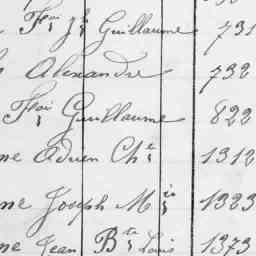 Fçoi Jh Guillaume 731
Alexandre 732
Fçoi Guillaume 822
ne Adrien Chs 1312
ne Joseph Mie 1323
ne Jean Bte Louis 1373